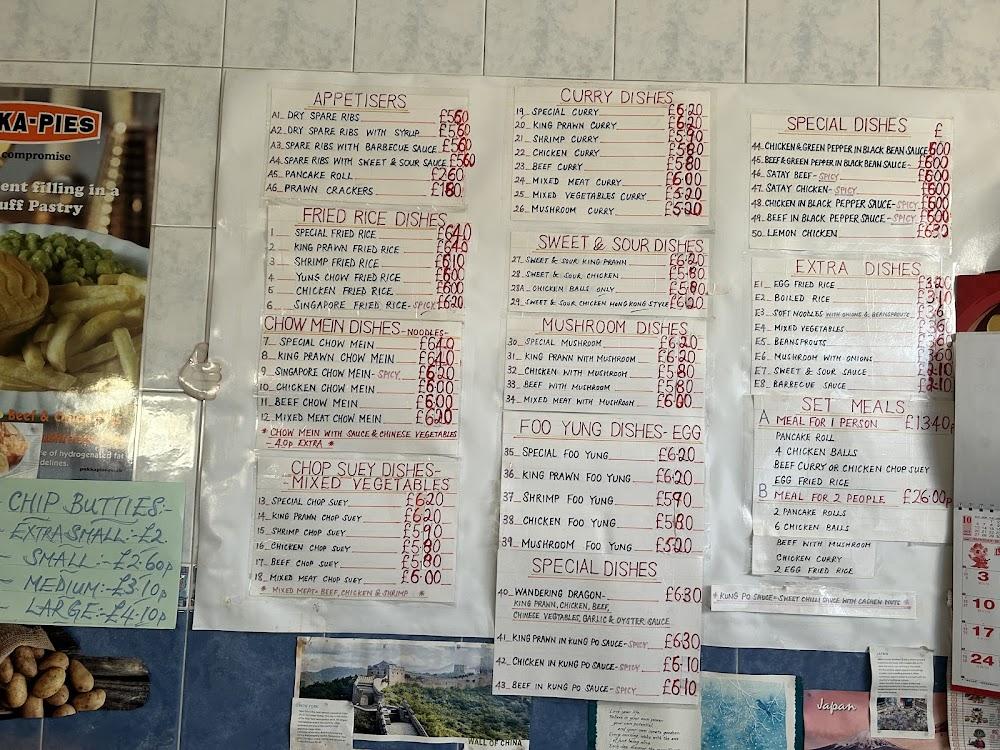 KA-PIES
compromise
ent filling in a
uff Pastry
Beef &
e of hydrogenated fat
delines.
pukkapies.co.uk
CHIP BUTTIES:-
- EXTRA SMALL:- £2.
- SMALL:- £2.60p
- MEDIUM:- £3.10p
- LARGE:- £4.10p
APPETISERS
A1. DRY SPARE RIBS £5.60
A2. DRY SPARE RIBS WITH SYRUP £5.60
A3. SPARE RIBS WITH BARBECUE SAUCE £5.60
A4. SPARE RIBS WITH SWEET & SOUR SAUCE £5.60
A5. PANCAKE ROLL £2.60
A6. PRAWN CRACKERS £1.80
FRIED RICE DISHES
1 SPECIAL FRIED RICE £6.40
2 KING PRAWN FRIED RICE £6.40
3 SHRIMP FRIED RICE £6.10
4 YUNG CHOW FRIED RICE £6.00
5 CHICKEN FRIED RICE £6.00
6 SINGAPORE FRIED RICE - SPICY £6.20
CHOW MEIN DISHES - NOODLES-
7 SPECIAL CHOW MEIN £6.40
8 KING PRAWN CHOW MEIN £6.40
9 SINGAPORE CHOW MEIN - SPICY £6.20
10 CHICKEN CHOW MEIN £6.00
11 BEEF CHOW MEIN £6.00
12 MIXED MEAT CHOW MEIN £6.20
* CHOW MEIN WITH SAUCE & CHINESE VEGETABLES
- 40p EXTRA *
CHOP SUEY DISHES-
-MIXED VEGETABLES
13 SPECIAL CHOP SUEY £6.20
14 KING PRAWN CHOP SUEY £6.20
15 SHRIMP CHOP SUEY £5.90
16 CHICKEN CHOP SUEY £5.80
17 BEEF CHOP SUEY £5.80
18 MIXED MEAT CHOP SUEY £6.00
* MIXED MEAT= BEEF, CHICKEN & SHRIMP *
CURRY DISHES
19 SPECIAL CURRY £6.20
20 KING PRAWN CURRY £6.20
21 SHRIMP CURRY £5.90
22 CHICKEN CURRY £5.80
23 BEEF CURRY £5.80
24 MIXED MEAT CURRY £6.00
25 MIXED VEGETABLES CURRY £5.20
26 MUSHROOM CURRY £5.20
SWEET & SOUR DISHES
27 SWEET & SOUR KING PRAWN £6.20
28 SWEET & SOUR CHICKEN £5.80
28A CHICKEN BALLS ONLY £5.80
29 SWEET & SOUR CHICKEN HONG KONG STYLE £6.20
MUSHROOM DISHES
30 SPECIAL MUSHROOM £6.20
31 KING PRAWN WITH MUSHROOM £6.20
32 CHICKEN WITH MUSHROOM £5.80
33 BEEF WITH MUSHROOM £5.80
34 MIXED MEAT WITH MUSHROOM £6.00
FOO YUNG DISHES- EGG
35 SPECIAL FOO YUNG £6.20
36 KING PRAWN FOO YUNG £6.20
37 SHRIMP FOO YUNG £5.90
38 CHICKEN FOO YUNG £5.80
39 MUSHROOM FOO YUNG £5.20
SPECIAL DISHES
40 WANDERING DRAGON- £6.30
KING PRAWN, CHICKEN, BEEF,
CHINESE VEGTABLES, GARLIC & OYSTER SAUCE
41 KING PRAWN IN KUNG PO SAUCE - SPICY £6.30
42 CHICKEN IN KUNG PO SAUCE - SPICY £6.10
43 BEEF IN KUNG PO SAUCE - SPICY £6.10
SPECIAL DISHES £
44. CHICKEN & GREEN PEPPER IN BLACK BEAN SAUCE £6.00
45. BEEF & GREEN PEPPER IN BLACK BEAN SAUCE- £6.00
46 SATAY BEEF - SPICY £6.00
47. SATAY CHICKEN - SPICY £6.00
48. CHICKEN IN BLACK PEPPER SAUCE - SPICY £6.00
49. BEEF IN BLACK PEPPER SAUCE - SPICY £6.00
50. LEMON CHICKEN £6.30
EXTRA DISHES
E1 EGG FRIED RICE £3.20
E2 BOILED RICE £3.10
E3 SOFT NOODLES WITH ONIONS & BEANSPROUTS
E4 MIXED VEGETABLES
E5 BEANSPROUTS
E6 MUSHROOM WITH ONIONS
E7 SWEET & SOUR SAUCE £2.10
E8 BARBECUE SAUCE £2.10
SET MEALS
A MEAL FOR 1 PERSON £13.40p
PANCAKE ROLL
4 CHICKEN BALLS
BEEF CURRY OR CHICKEN CHOP SUEY
EGG FRIED RICE
B MEAL FOR 2 PEOPLE £26.00p
2 PANCAKE ROLLS
6 CHICKEN BALLS
BEEF WITH MUSHROOM
CHICKEN CURRY
2 EGG FRIED RICE
* KUNG PO SAUCE - SWEET CHILLI SAUCE WITH CASHEW NUTS *
WALL OF CHINA
Japan
10
3
10
17
24